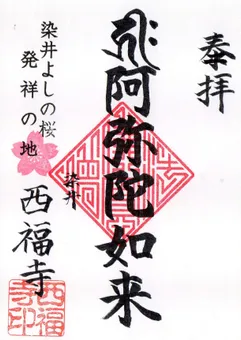 奉拝
阿弥陀如来
染井
染井よしの桜
発祥の地
西福寺
西福
寺印